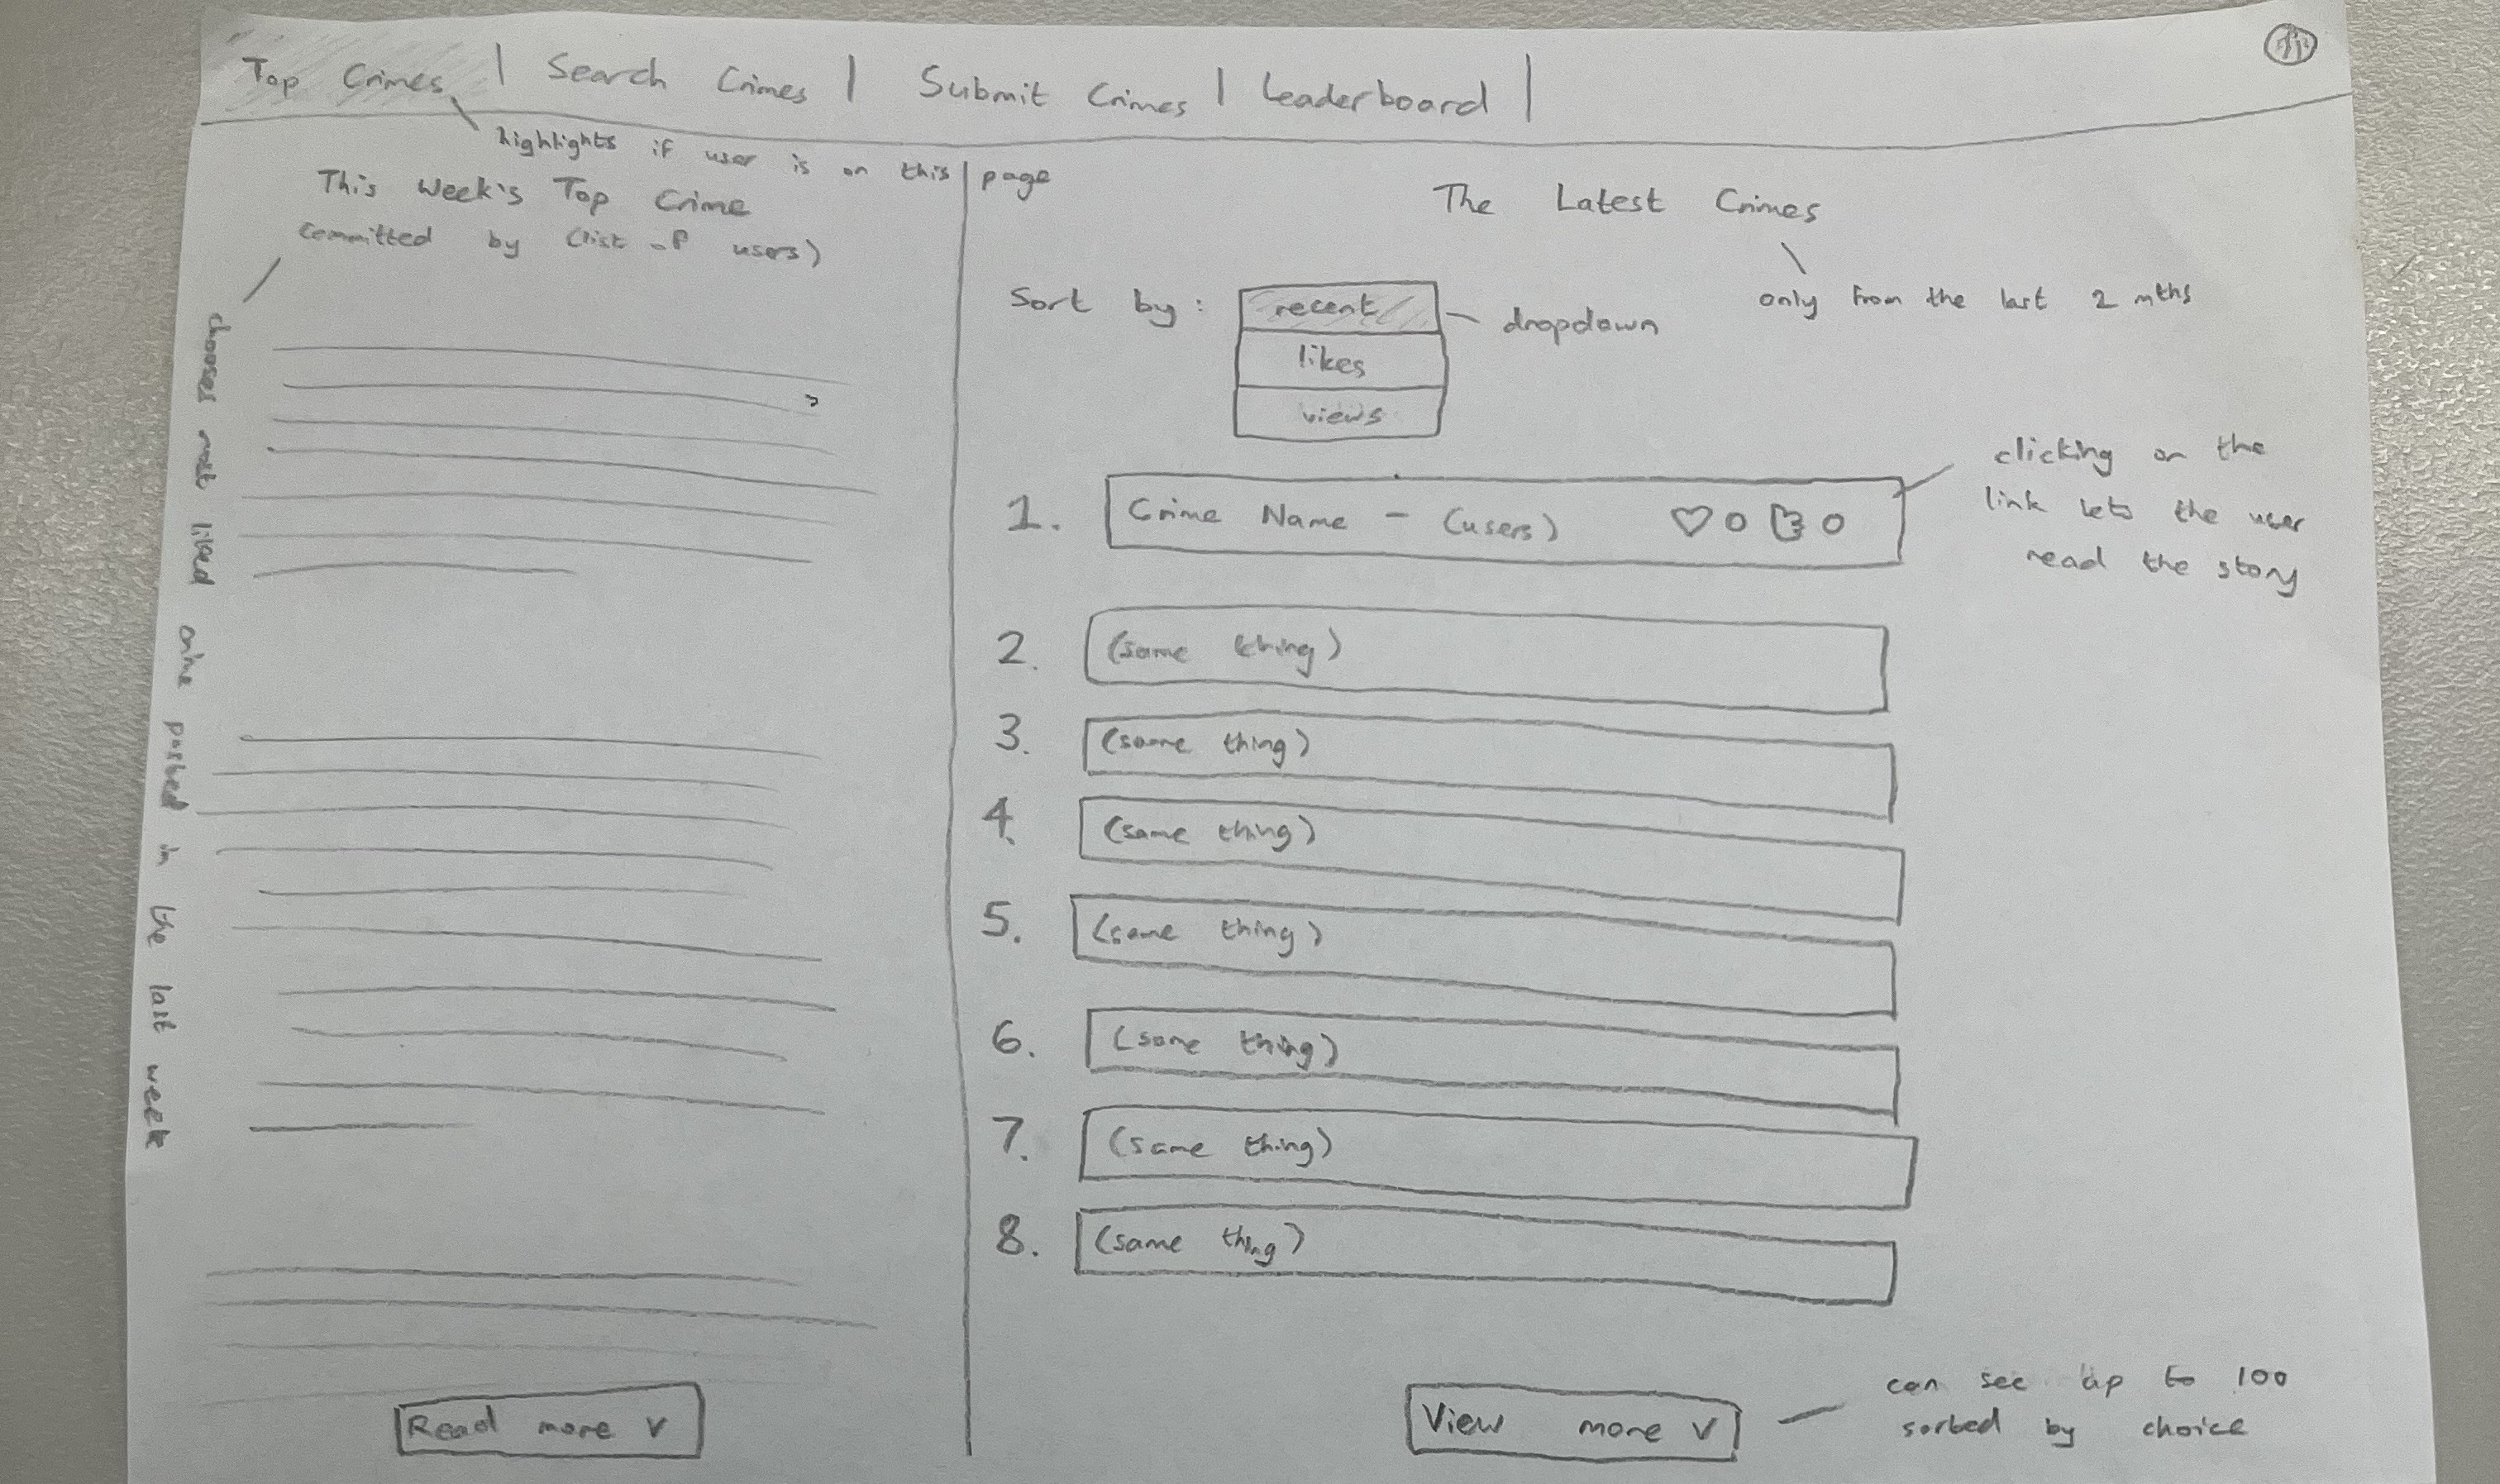 Top Crimes | Search Crimes | Submit Crimes | Leaderboard |
highlights if user is on this page
This Week's Top Crime
committed by (list of users)
chooses most liked crime posted in the last week
Read more v
The Latest Crimes
only from the last 2 mths
Sort by:
recent
dropdown
likes
views
1. Crime Name - (users) ♡ 0 0
clicking on the
link lets the user
read the story
2. (same thing)
3. (same thing)
4. (same thing)
5. (same thing)
6. (same thing)
7. (same thing)
8. (same thing)
View more v
can see up to 100
sorted by choice